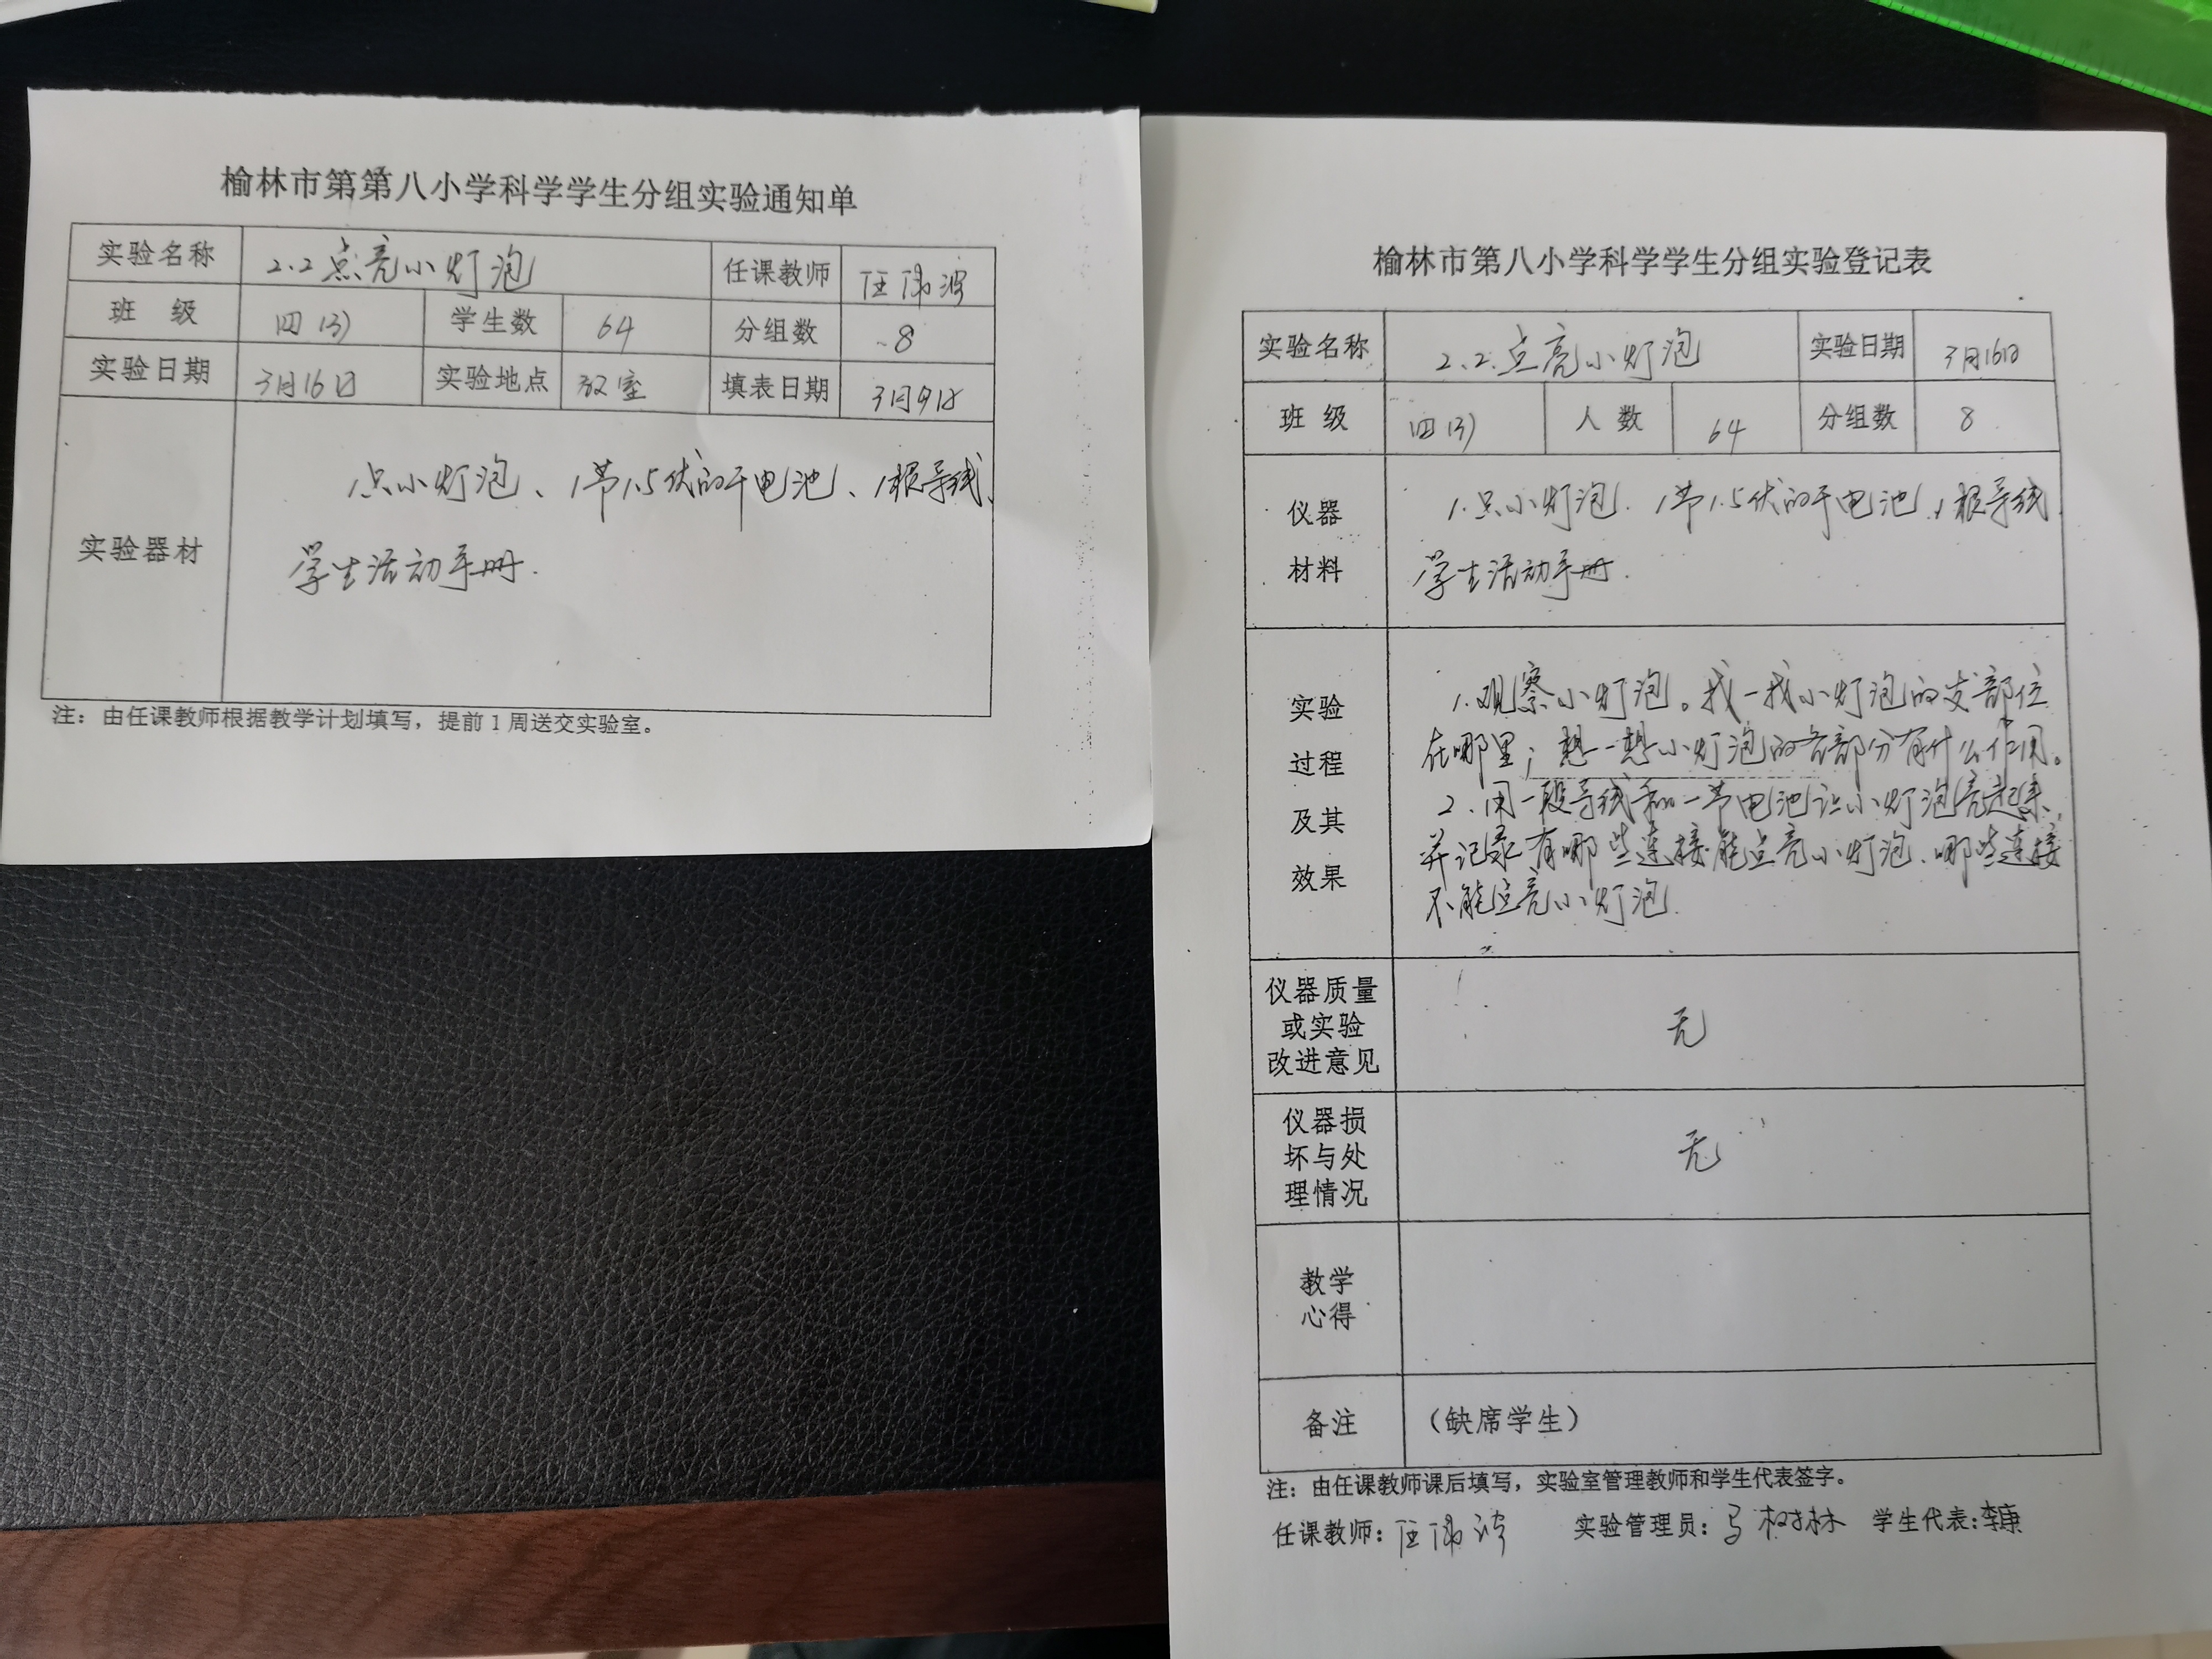 榆林市第第八小学科学学生分组实验通知单
实验名称 2.2点亮小灯泡 任课教师
班 级 四(3) 学生数 64 分组数 8
实验日期 3月16日 实验地点 教室 填表日期 3月9日
实验器材
1.点小灯泡、1节1.5伏的干电池、1根导线、
学生活动手册.
注：由任课教师根据教学计划填写，提前1周送交实验室。
榆林市第八小学科学学生分组实验登记表
实验名称 2.2.点亮小灯泡 实验日期 3月16日
班 级 四(3) 人 数 64 分组数 8
仪器
材料
1.点小灯泡.1节1.5伏的干电池、1根导线.
学生活动手册.
实验
过程
及其
效果
1.观察小灯泡。找一找小灯泡的部位
在哪里；想一想小灯泡的各部分有什么作用。
2.用一段导线和一节电池让小灯泡亮起来,
并记录有哪些连接能点亮小灯泡、哪些连接
不能点亮小灯泡.
仪器质量
或实验
改进意见
无
仪器损
坏与处
理情况
无
教学
心得
备注 （缺席学生）
注：由任课教师课后填写，实验室管理教师和学生代表签字。
任课教师： 实验管理员：马树林 学生代表:李康